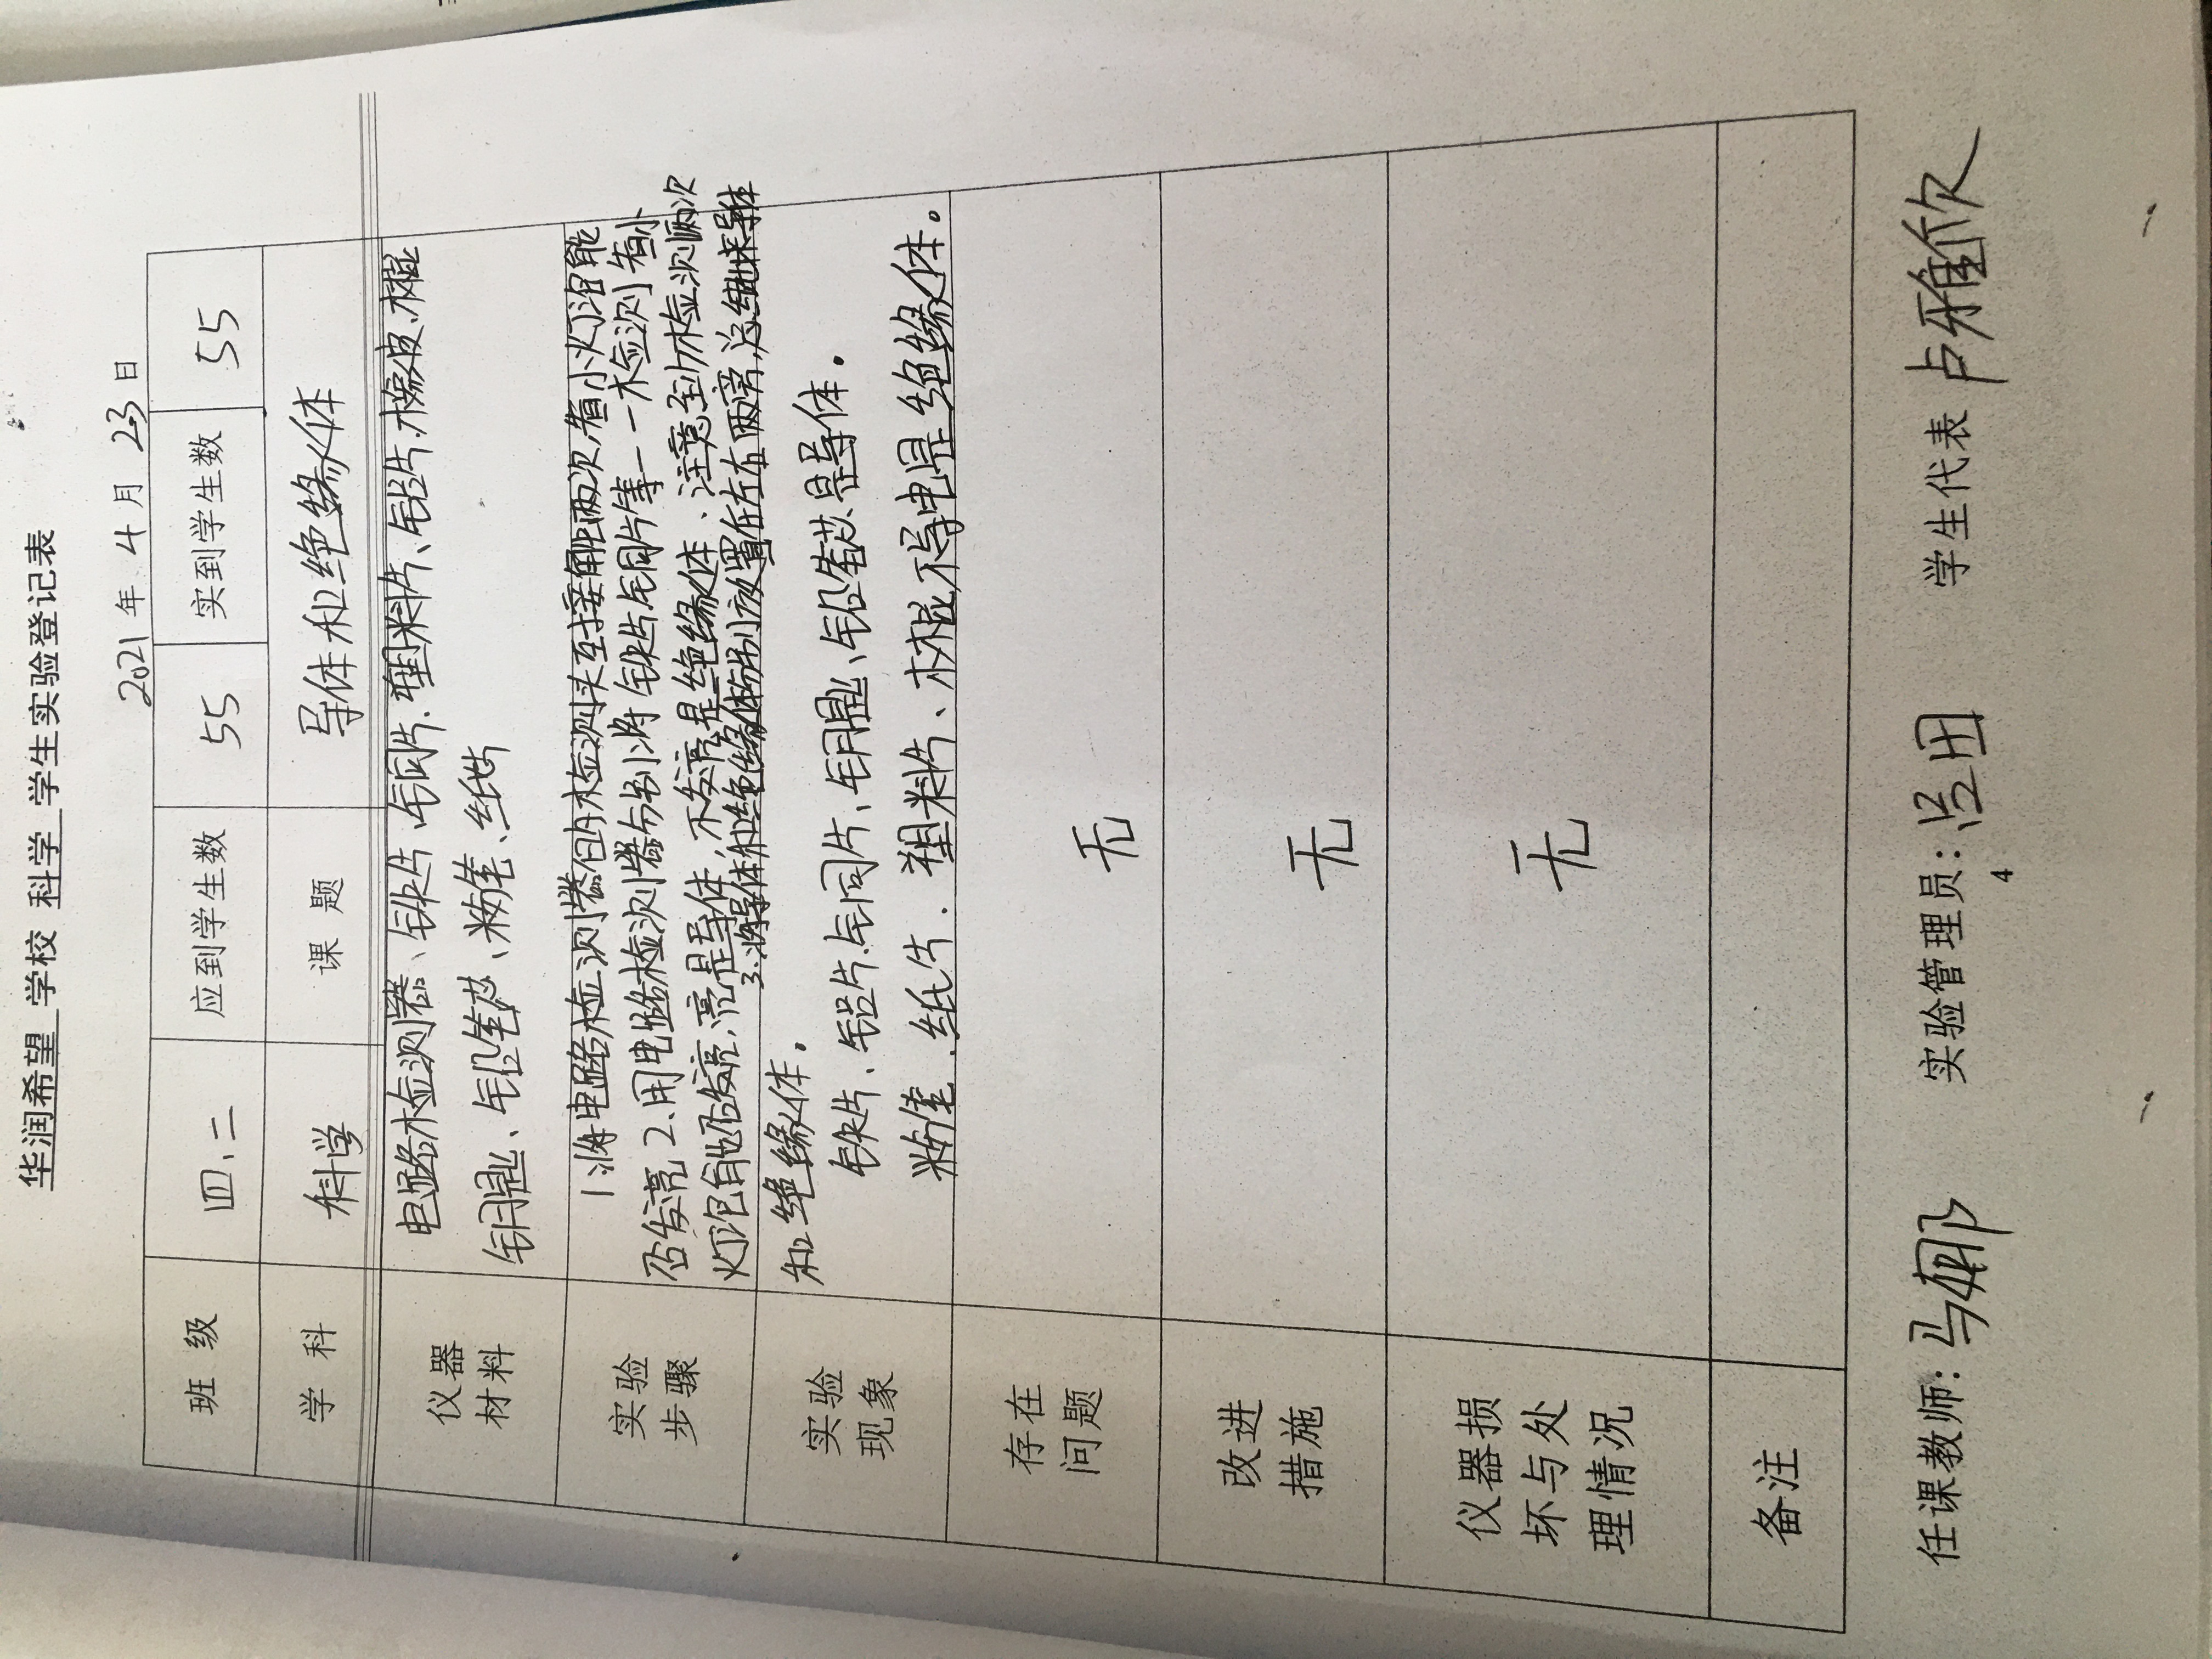 华润希望 学校 科学 学生实验登记表
2021 年 4 月 23 日
班 级 四、二 应到学生数 55 实到学生数 55
学 科 科学 课 题 导体和绝缘体
仪器材料
电路检测器、铁片、铜片、塑料片、铝片、橡皮、木棍
钥匙、铅笔芯、粉笔、纸片
实验步骤
1.将电路检测器的检测头互接触两次,看小灯泡能
否发亮 2.用电路检测器分别将铁片铜片等一一检测看小
灯泡能否发亮,亮是导体,不发亮是绝缘体、注意至少检测两次
3.将导体和绝缘体分别放置在左右两旁,总结出来导体
和绝缘体。
实验现象
铁片、铝片、铜片、钥匙、铅笔芯是导体。
粉笔、纸片、塑料片、木棍不导电是绝缘体。
存在问题 无
改进措施 无
仪器损坏与处理情况 无
备注
任课教师: 马娜 实验管理员: 学生代表 卢雅欣
4